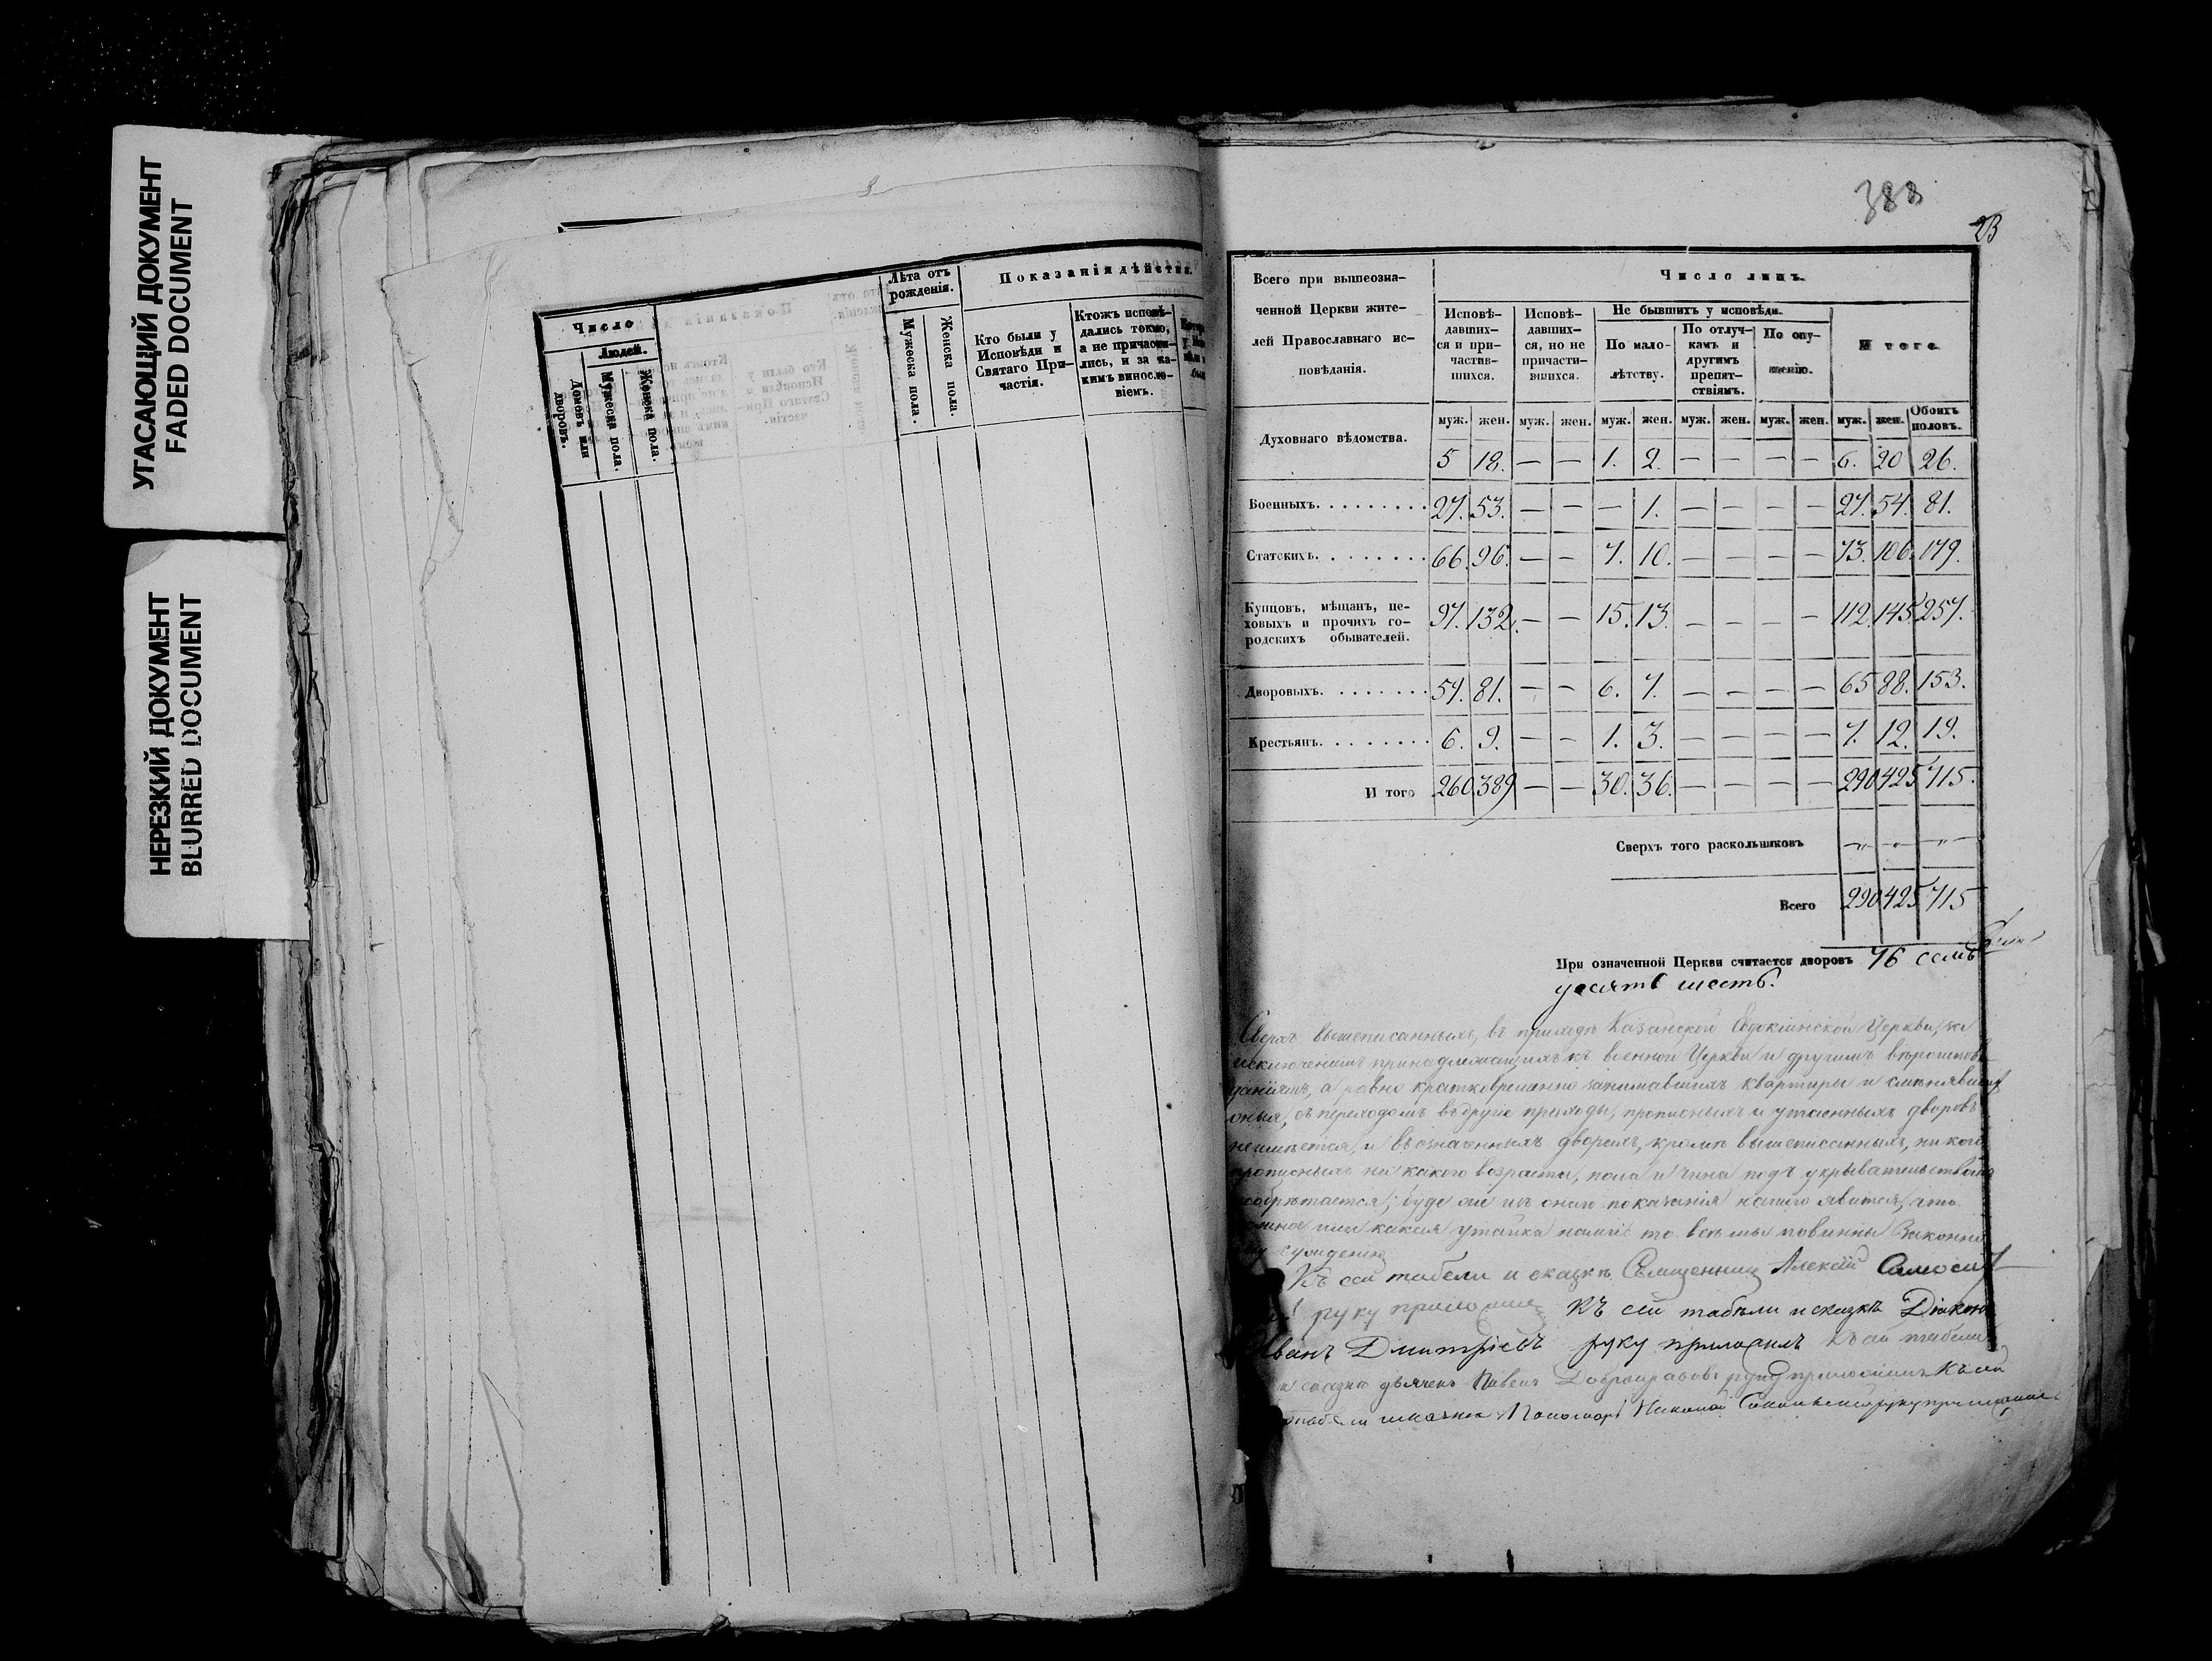 УГАСАЮЩИЙ ДОКУМЕНТ
FADED DOCUMENT
НЕРЕЗКИЙ ДОКУМЕНТ
BLURRED DOCUMENT
Число
Людей.
Домовъ или дворовъ.
Мужеска пола.
Женска пола.
Лѣта отъ рожденія.
Мужеска пола.
Женска пола.
Показанія дѣйств
Кто были у
Исповѣди и
Святаго При-
частія.
Ктожъ исповѣ-
дались токмо,
а не причасти-
лись, и за ка-
кимъ винословіемъ.
388
23
Всего при вышеозна-
ченной Церкви жите-
лей Православнаго ис-
повѣданія.
Число лицъ.
Исповѣ-
давших-
ся и при-
частив-
шихся.
Исповѣ-
давших-
ся, но не
причасти-
вшихся.
Не бывшихъ у исповѣди.
По мало-
лѣтству.
По отлуч-
камъ и
другимъ
препят-
ствіямъ.
По опу-
щенію.
Итого
муж. жен. муж. жен. муж. жен. муж. жен. муж. жен. муж. жен. Обоихъ половъ.
Духовнаго вѣдомства. 5 18. — — 1. 2. — — — — 6. 20 26.
Военныхъ. 27. 53. — — — 1. — — — — 27. 54. 81.
Статскихъ. 66. 96. — — 7. 10. — — — — 73. 106. 179.
Купцовъ, мѣщанъ, це-
ховыхъ и прочихъ го-
родскихъ обывателей. 97. 132. — — 15. 13. — — — — 112. 145. 257.
Дворовыхъ. 59. 81. — — 6. 7. — — — — 65 88. 153.
Крестьянъ. 6. 9. — — 1. 3. — — — — 7. 12. 19.
И того 260. 389 — — 30. 36. — — — — 290 425 715.
Сверхъ того раскольниковъ — — —
Всего 290 425 715
При означенной Церкви считается дворовъ 76 семь
десятъ шесть.
Сверхъ вышеписанныхъ, въ приходѣ Казанской Евдокіинской Церкви, за
исключеніемъ принадлежащихъ къ военной Церкви и другимъ вѣроиспов
даніямъ, а равно кратковременно занимавшихъ квартиры и смѣнявших
оныя, съ переходомъ въ другіе приходы, прописныхъ и утаенныхъ дворовъ
неимѣется, и въ означенныхъ дворахъ, кромѣ вышеписанныхъ, ни кого
прописныхъ ни какого возраста, пола и чина подъ укрывательствомъ
обрѣтается; буде же изъ онаго показанія нашего явится, что
или какая утайка нами: то всѣ мы повинны Законно
сужденію
Къ сей табели и сказкѣ Священникъ Алексій
руку приложилъ Къ сей табели и сказкѣ Діаконъ
Иванъ Дмитріевъ руку приложилъ Къ сей табели
и сказкѣ дьячекъ Павелъ Добронравовъ руку приложилъ Къ сей
табели и сказкѣ Пономарь Николай руку приложилъ